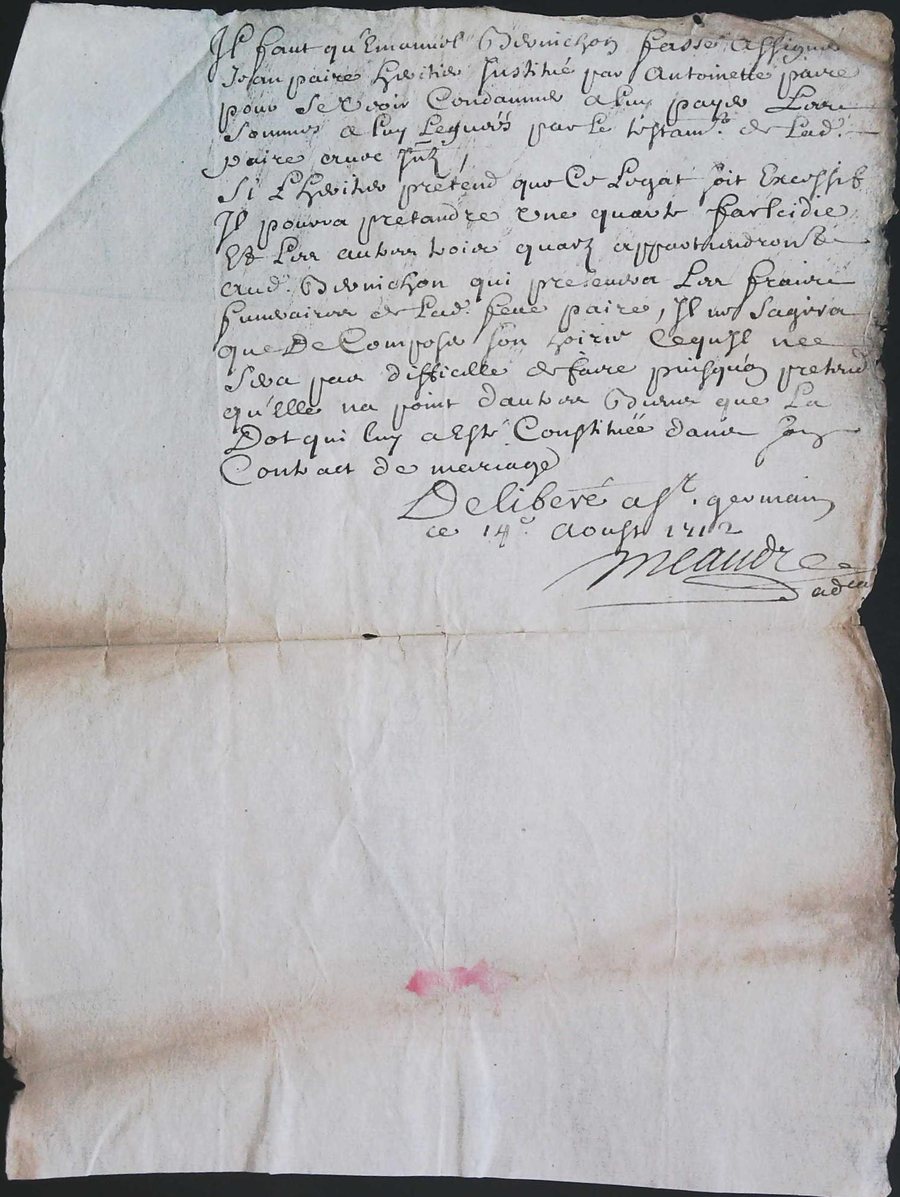 Il faut qu'Emanuel Bernichon fasse assigner
Jean paire heritier Institué par Antoinette paire
pour se voir Condamner a luy payer Les
sommes a luy Leguées par le testamt. de Lad.
paire avec Intz /
Si L'heritier pretend que Ce Legat soit Excessif
Il pourra pretandre une quarte falcidie
Et Les autres trois quarz appartiendront
aud. Bernichon qui prelevera Les fraix
funeraires de Lad. feue paire, Il ne sagira
que De Composer son hoirie Cequil ne
sera pas difficille de faire puisqu'on pretend
qu'elle na point dautres Biens que La
Dot qui luy a Esté Constituée dans son
Contract de mariage
Deliberé a st. germain
ce 14e. Aoust 1712
Meaudre